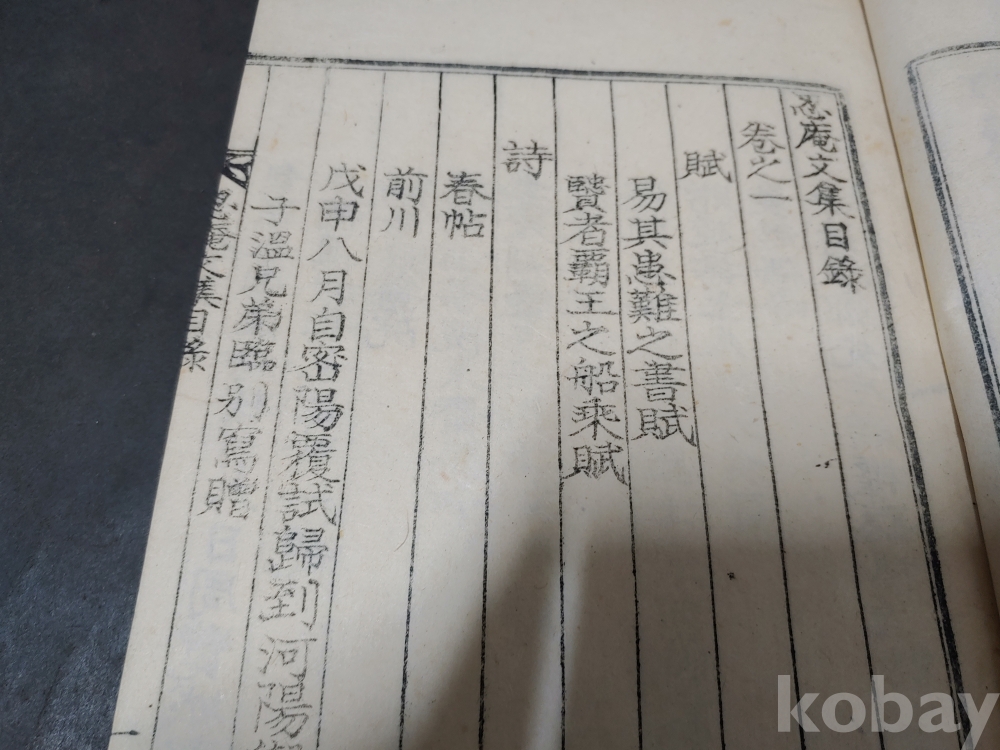 忍庵文集目錄
卷之一
賦
易其患難之書賦
賢者霸王之船乘賦
詩
春帖
前川
戊申八月自密陽覆試歸到河陽
子溫兄弟臨別寫贈
忍庵文集目錄
一
kobay